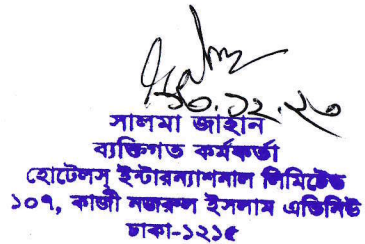 ১০.১২.২০
সালমা জাহান
ব্যক্তিগত কর্মকর্তা
হোটেলস্ ইন্টারন্যাশনাল লিমিটেড
১০৭, কাজী নজরুল ইসলাম এভিনিউ
ঢাকা-১২১৫